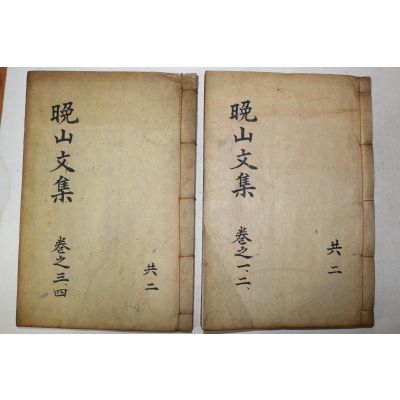 晩山文集
卷之一、二
共二
晩山文集
卷之三、四
共二